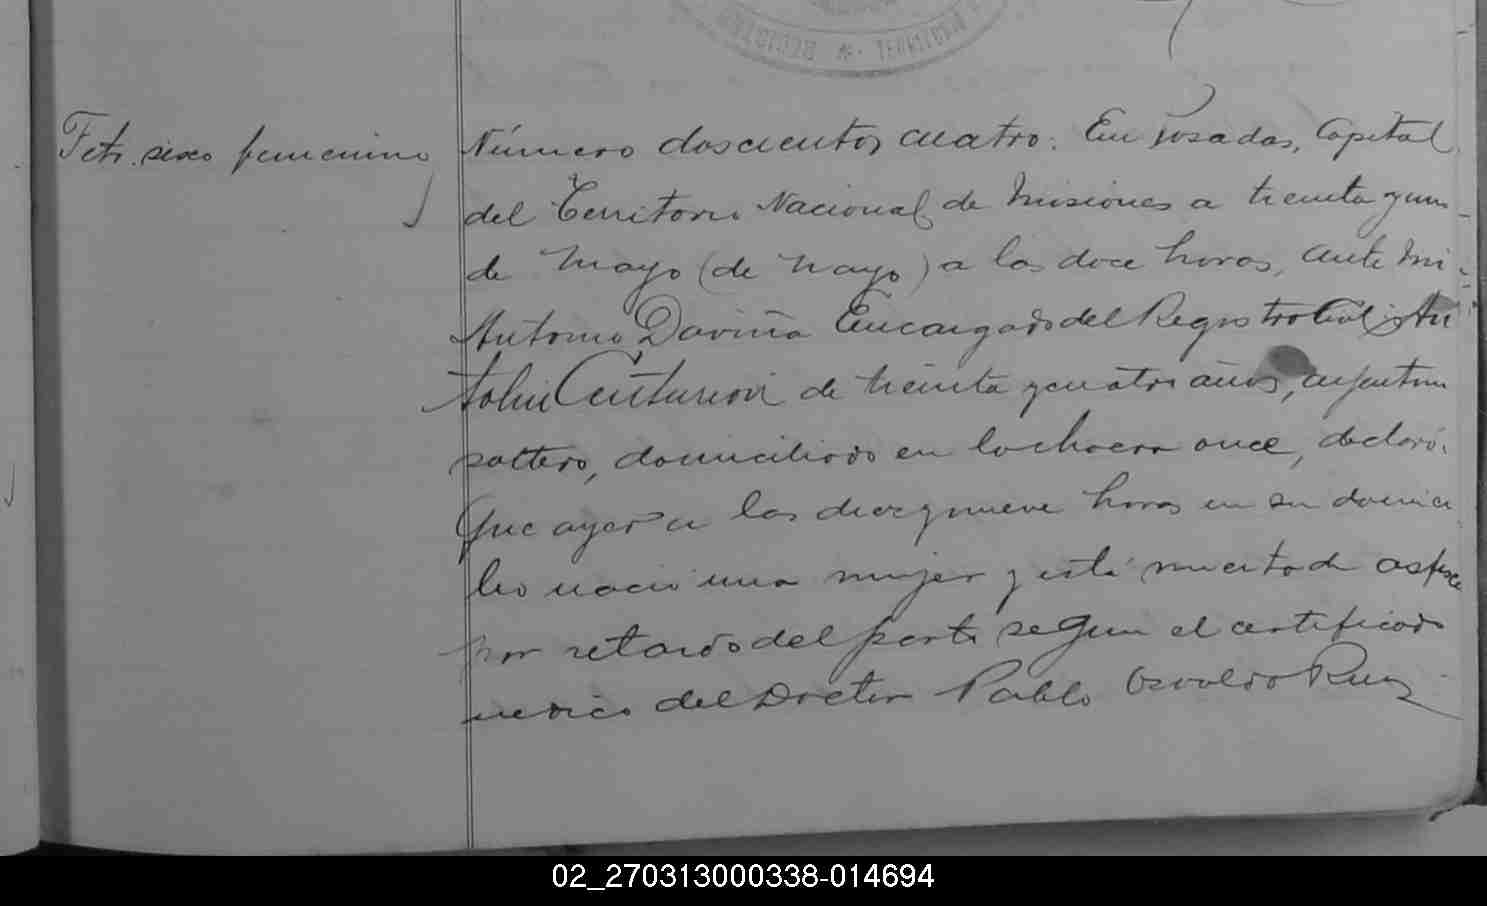 REGISTRO * TERRITORIAL
Feto sexo femenino
Número doscientos cuatro. En Posadas, Capital
del Territorio Nacional de Misiones a treinta y uno
de Mayo (de Mayo) a las doce horas, ante mi
Antonio Daviña Encargado del Registro Civil, An
tolin Centurion de treinta y cuatro años, argentino
soltero, domiciliado en la chacra once, declaró.
Que ayer a las diez y nueve horas en su domici
lio nació una mujer y está muerta de asfixia
por retardo del parto segun el certificado
medico del Doctor Pablo Osvaldo Ruiz
02_270313000338-014694